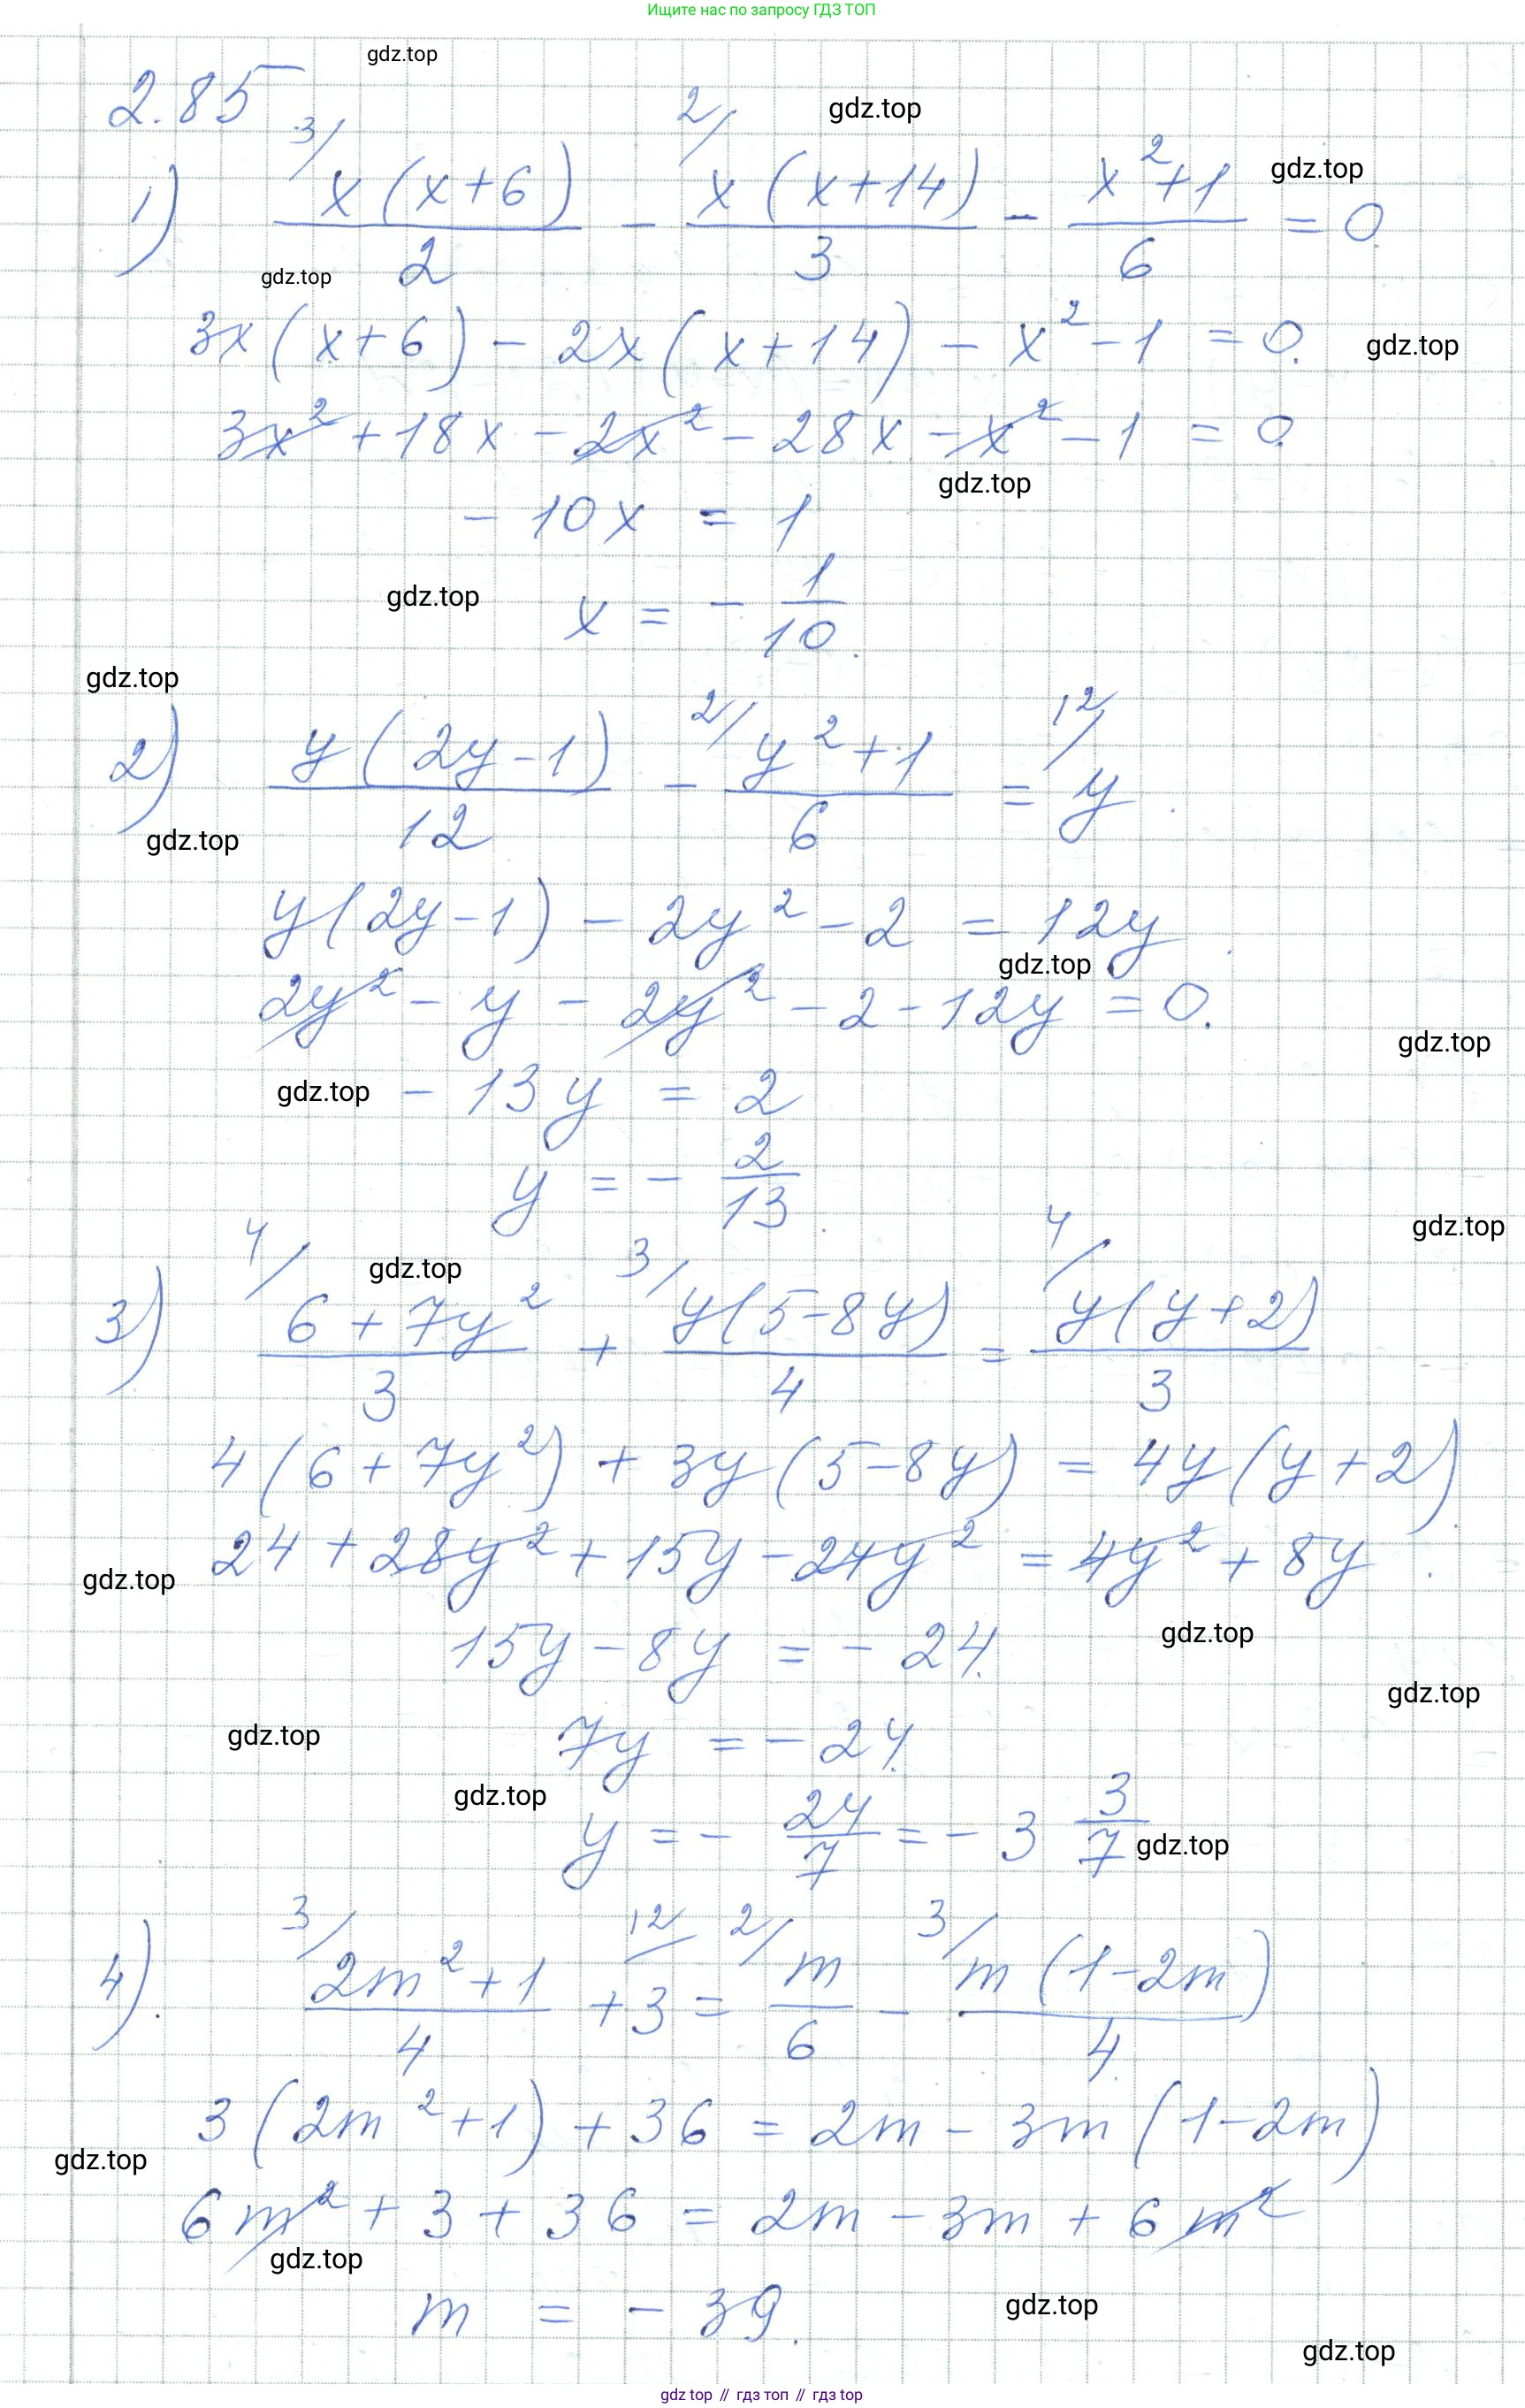 Ищите нас по запросу ГДЗ ТОП
gdz.top
2.85
gdz.top
3/ 2/
1) x(x+6)/2 - x(x+14)/3 - (x²+1)/6 = 0.
gdz.top
gdz.top
3x(x+6) - 2x(x+14) - x² - 1 = 0.
gdz.top
3x² + 18x - 2x² - 28x - x² - 1 = 0
gdz.top
- 10x = 1
gdz.top
x = - 1/10.
gdz.top
2/ 12/
2) y(2y-1)/12 - (y²+1)/6 = y.
gdz.top
y(2y-1) - 2y² - 2 = 12y.
gdz.top
2y² - y - 2y² - 2 - 12y = 0.
gdz.top
gdz.top
- 13y = 2
y = - 2/13.
gdz.top
4/ 3/ 4/
gdz.top
3) (6+7y²)/3 + y(5-8y)/4 = y(y+2)/3
4(6+7y²) + 3y(5-8y) = 4y(y+2).
24 + 28y² + 15y - 24y² = 4y² + 8y.
gdz.top
15y - 8y = - 24.
gdz.top
gdz.top
gdz.top
7y = - 24.
gdz.top
y = - 24/7 = - 3 3/7
gdz.top
3/ 12/ 2/ 3/
4). (2m²+1)/4 + 3 = m/6 - m(1-2m)/4.
3(2m²+1) + 36 = 2m - 3m(1-2m)
gdz.top
6m² + 3 + 36 = 2m - 3m + 6m²
gdz.top
m = - 39.
gdz.top
gdz.top
gdz top // гдз топ // гдз top